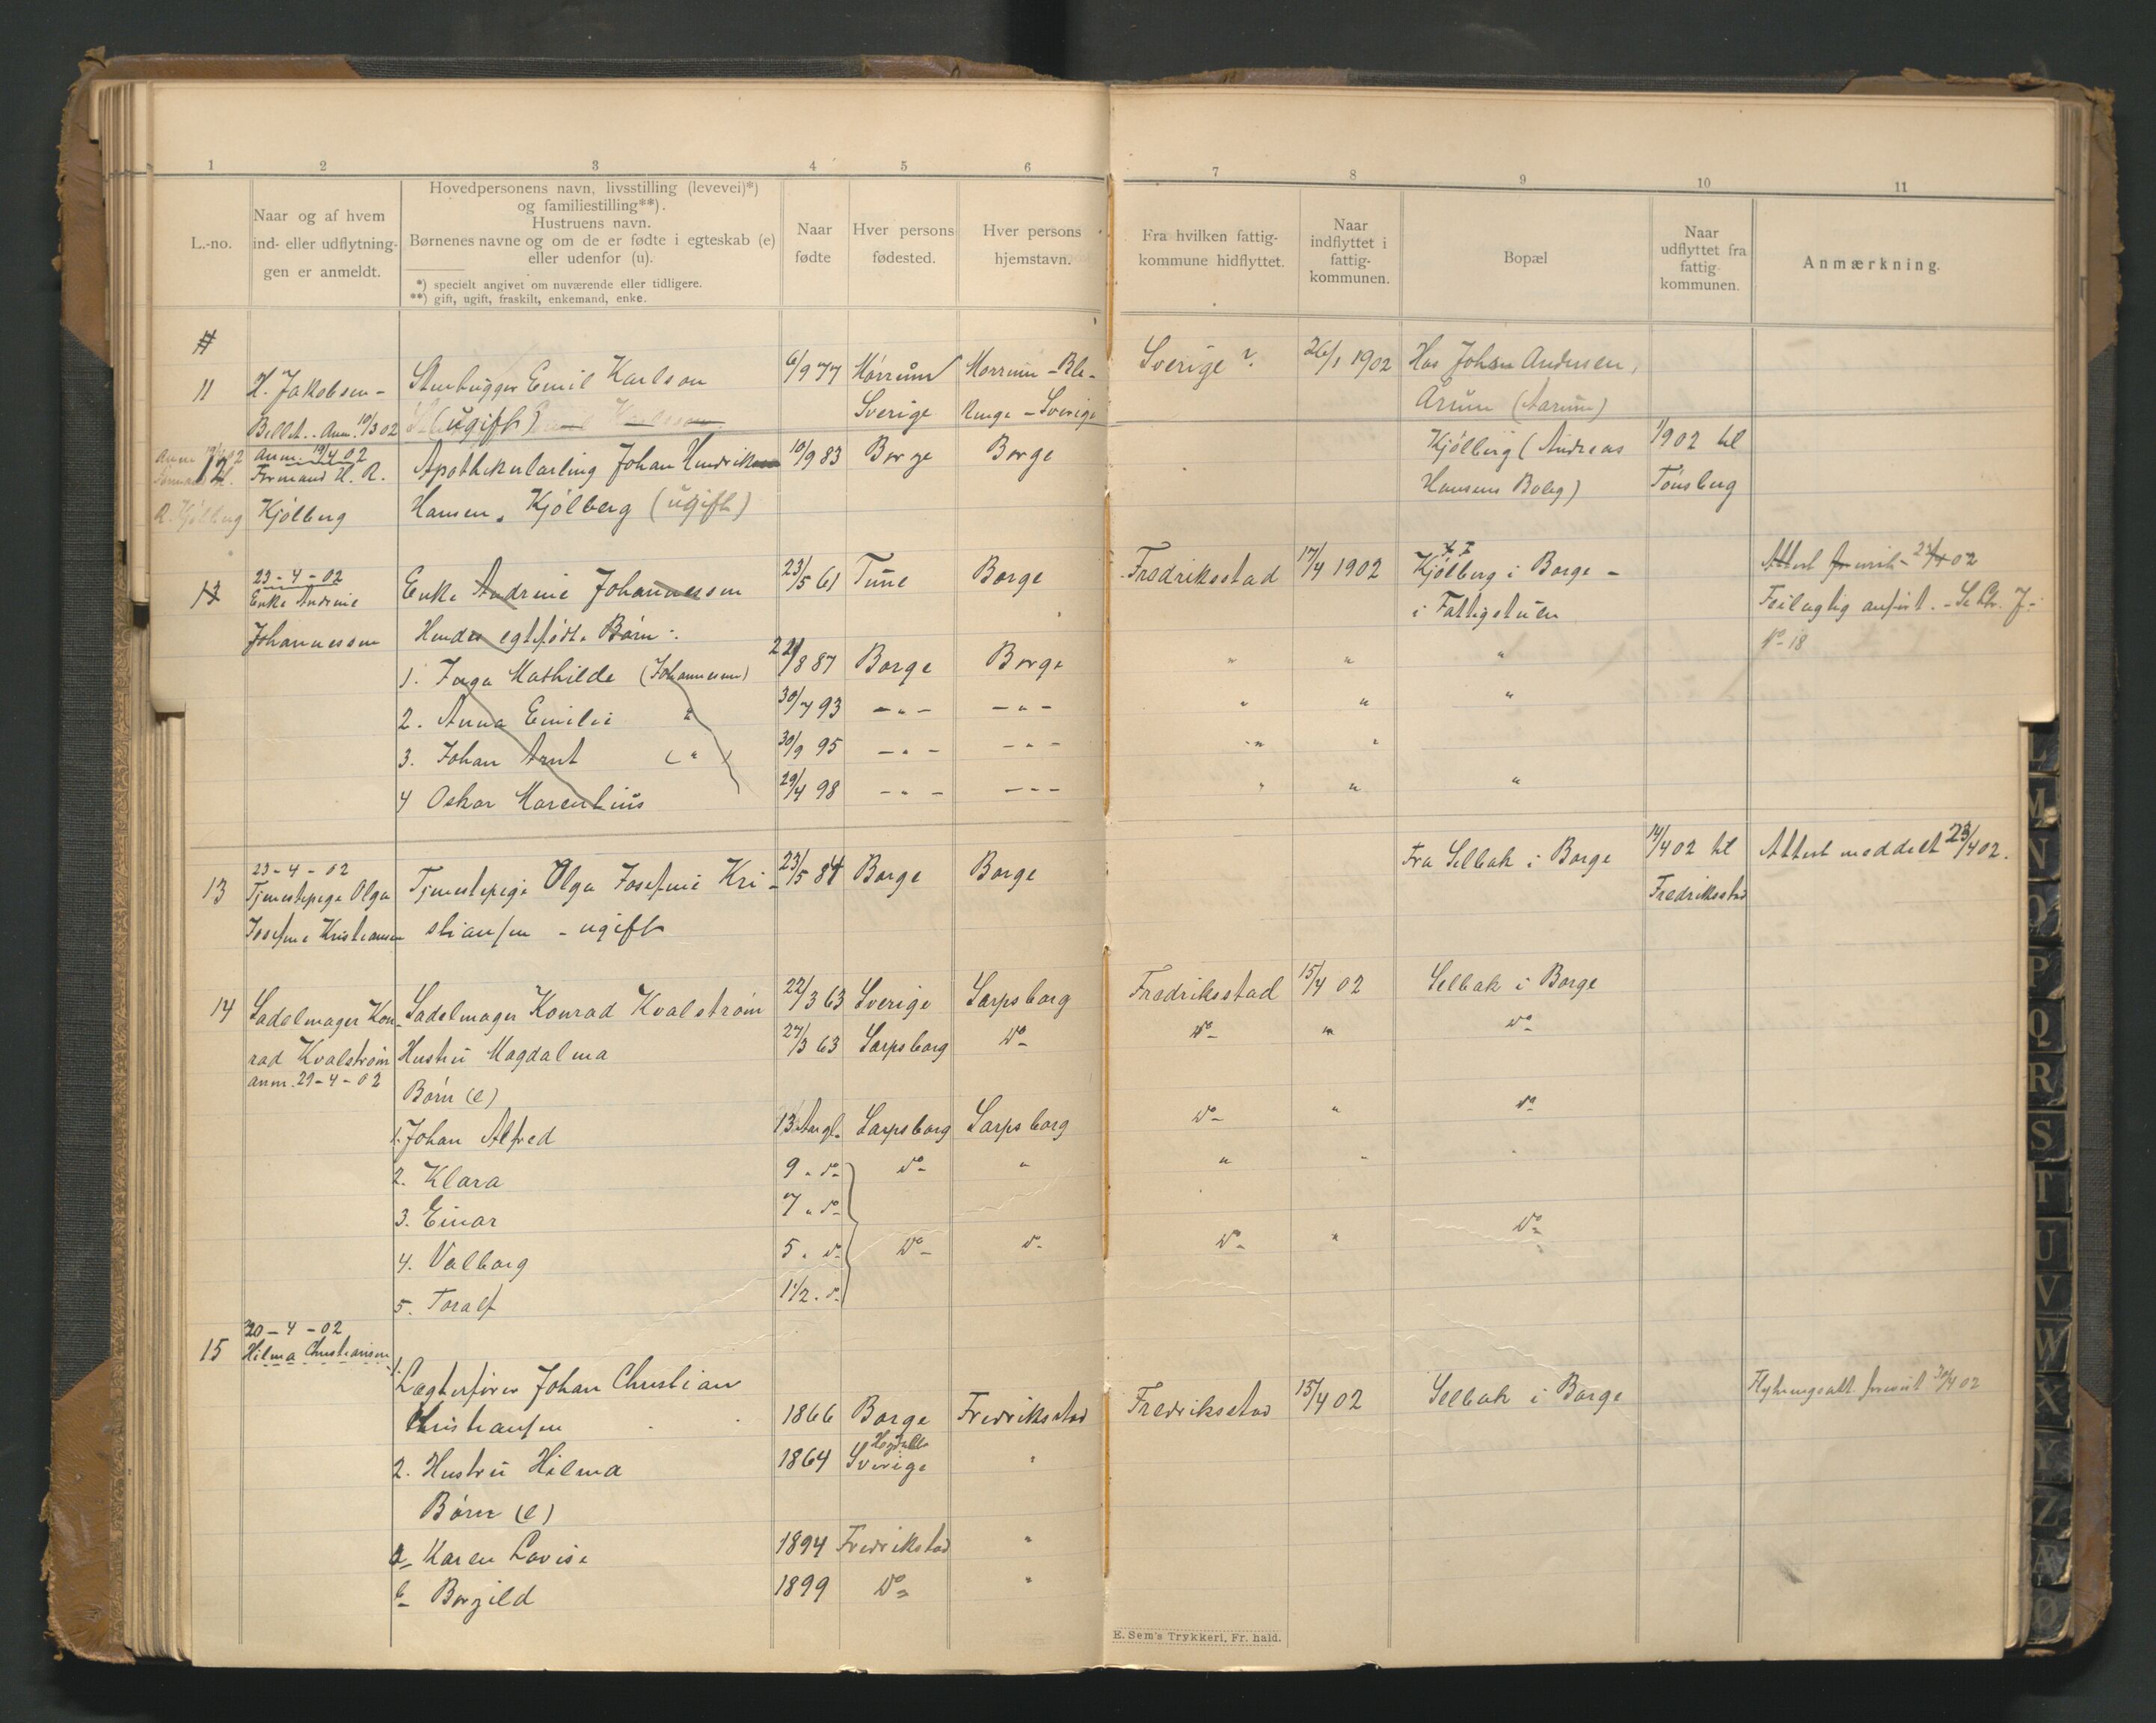 1 2 3 4 5 6 7 8 9 10 11
L.-no.
Naar og af hvem
ind- eller udflytnin-
gen er anmeldt.
Hovedpersonens navn, livsstilling (levevei)*)
og familiestilling**).
Hustruens navn.
Børnenes navne og om de er fødte i egteskab (e)
eller udenfor (u).
*) specielt angivet om nuværende eller tidligere.
**) gift, ugift, fraskilt, enkemand, enke.
Naar
fødte
Hver persons
fødested.
Hver persons
hjemstavn.
Fra hvilken fattig-
kommune hidflyttet.
Naar
indflyttet i
fattig-
kommunen.
Bopæl
Naar
udflyttet fra
fattig
kommunen.
Anmærkning.
11 H. Jakobsen - Stenhugger Emil Karlson 6/9 77 Mörrum Morrum - Ble- Sverige ? 26/1 1902 Hos Johan Andersen,
Bellet.. Anm. 19/3 02 (ugift) Sverige kinge - Sverige Årum (Aarum)
12 anm. 19/4 02 Apothekerlærling Johan Hendrik 10/9 83 Borge Borge Kjölberg (Andreas 1/902 til
Formand H. R. Hansens Bolig) Tönsberg
Kjölberg Hansen, Kjölberg (ugift)
13 23-4-02 Enke Andrine Johannessen 23/5 61 Tune Borge Fredriksstad 17/4 1902 Kjölberg i Borge - Attest 23/4 02
Enke Andrine i Fattigstuen Feilagtig anført. - Se J-
Johannessen Hendes egtefødte Børn: No 18
1. Inga Mathilde (Johannesen) 22/8 87 Borge Borge " " "
2. Anna Emilie " 30/7 93 - " - - " - " " "
3. Johan Arnt ( " ) 30/9 95 - " - - " - " "
4 Oskar Marentius 29/4 98 - " - - - - " " "
13 23-4-02 Tjenestepige Olga Josefine Kri- 23/5 84 Borge Borge Fra Selbak i Borge 14/4 02 til Attest meddelt 23/4 02.
Tjenestepige Olga Fredriksstad
Josefine Kristiansen stiansen - ugift
14 Sadelmager Kon- Sadelmager Konrad Kvalström 22/3 63 Sverige Sarpsborg Fredriksstad 15/4 02 Selbak i Borge
rad Kvalström Hustru Magdalena 27/3 63 Sarpsborg do do " do
anm. 29-4-02
Børn (e)
1. Johan Alfred 13 Aar gl. Sarpsborg Sarpsborg do " do
2. Klara 9 " do do " " "
3. Einar 7 " do
4. Valborg 5 " do do do do " do
5. Toralf 1 1/2 " do
15 30-4-02
Hilma Christiansen
1. Lægterfører Johan Christian
Christiansen 1866 Borge Fredriksstad Fredriksstad 15/4 02 Selbak i Borge 30/4 02
2. Hustru Hilma 1864 Sverige "
Børn (e)
a Karen Lovise 1894 Fredrikstad "
b Borgild 1899 do "
E. Sem's Trykkeri, Fr. hald.
L
M
N
O
P
Q
R
S
T
U
V
W
X
Y
Z
Æ
Ø